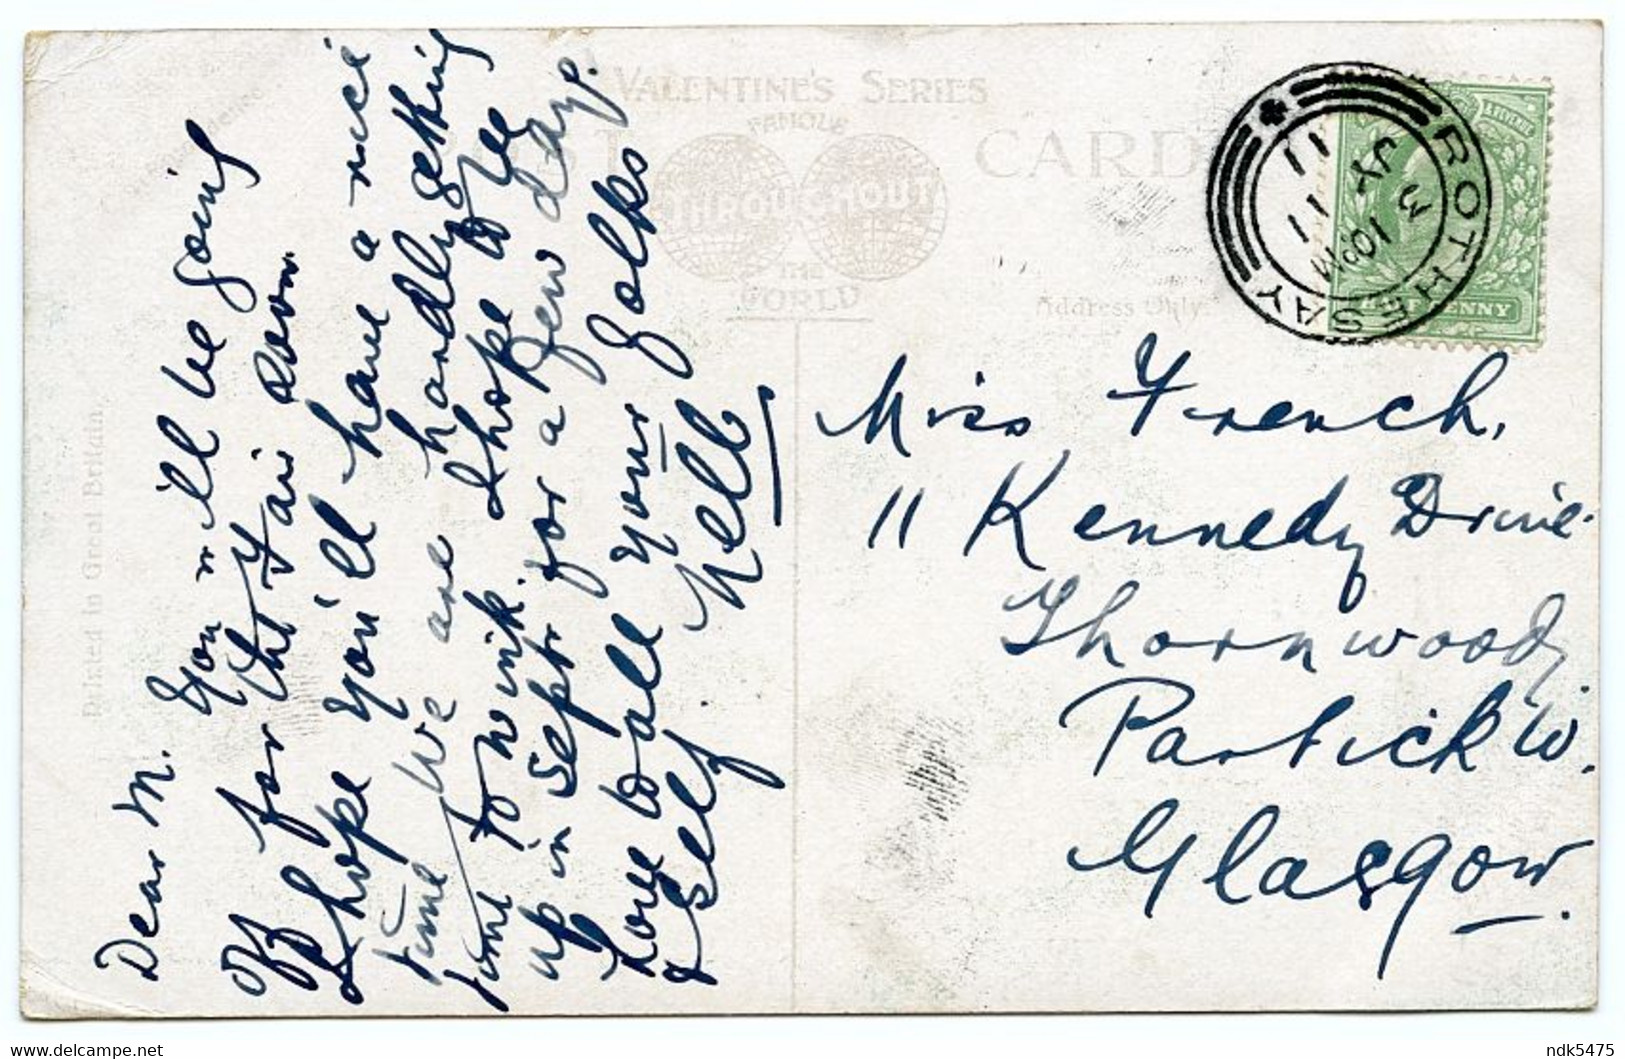 Dear M. You will be going
off for the Fair soon
I hope you'll have a nice
time We are hardly getting
time to wink. I hope to be
up in Septr for a few days.
Love to all your folks
& Self. Nell
VALENTINE'S SERIES
FAMOUS
THROUGHOUT
THE
WORLD
CARD
Address Only.
Printed in Great Britain.
ROTHESAY
11
JY 11
3
10 PM
& REVENUE
PENNY
Miss French,
11 Kennedy Drive
Thornwood,
Partick W.
Glasgow.
ndk5475